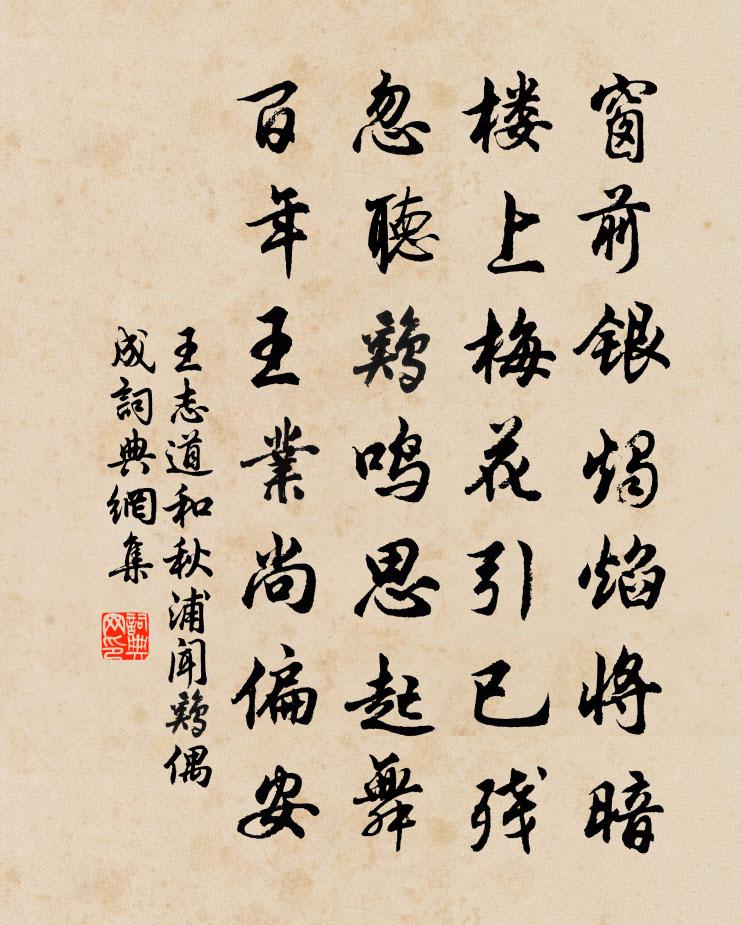 窗前銀燭焰将暗
楼上梅花引已残
忽聽鷄鸣思起舞
百年王業尚偏安
王志道和秋浦闻鷄偶
成詞典網集
詞典
网印